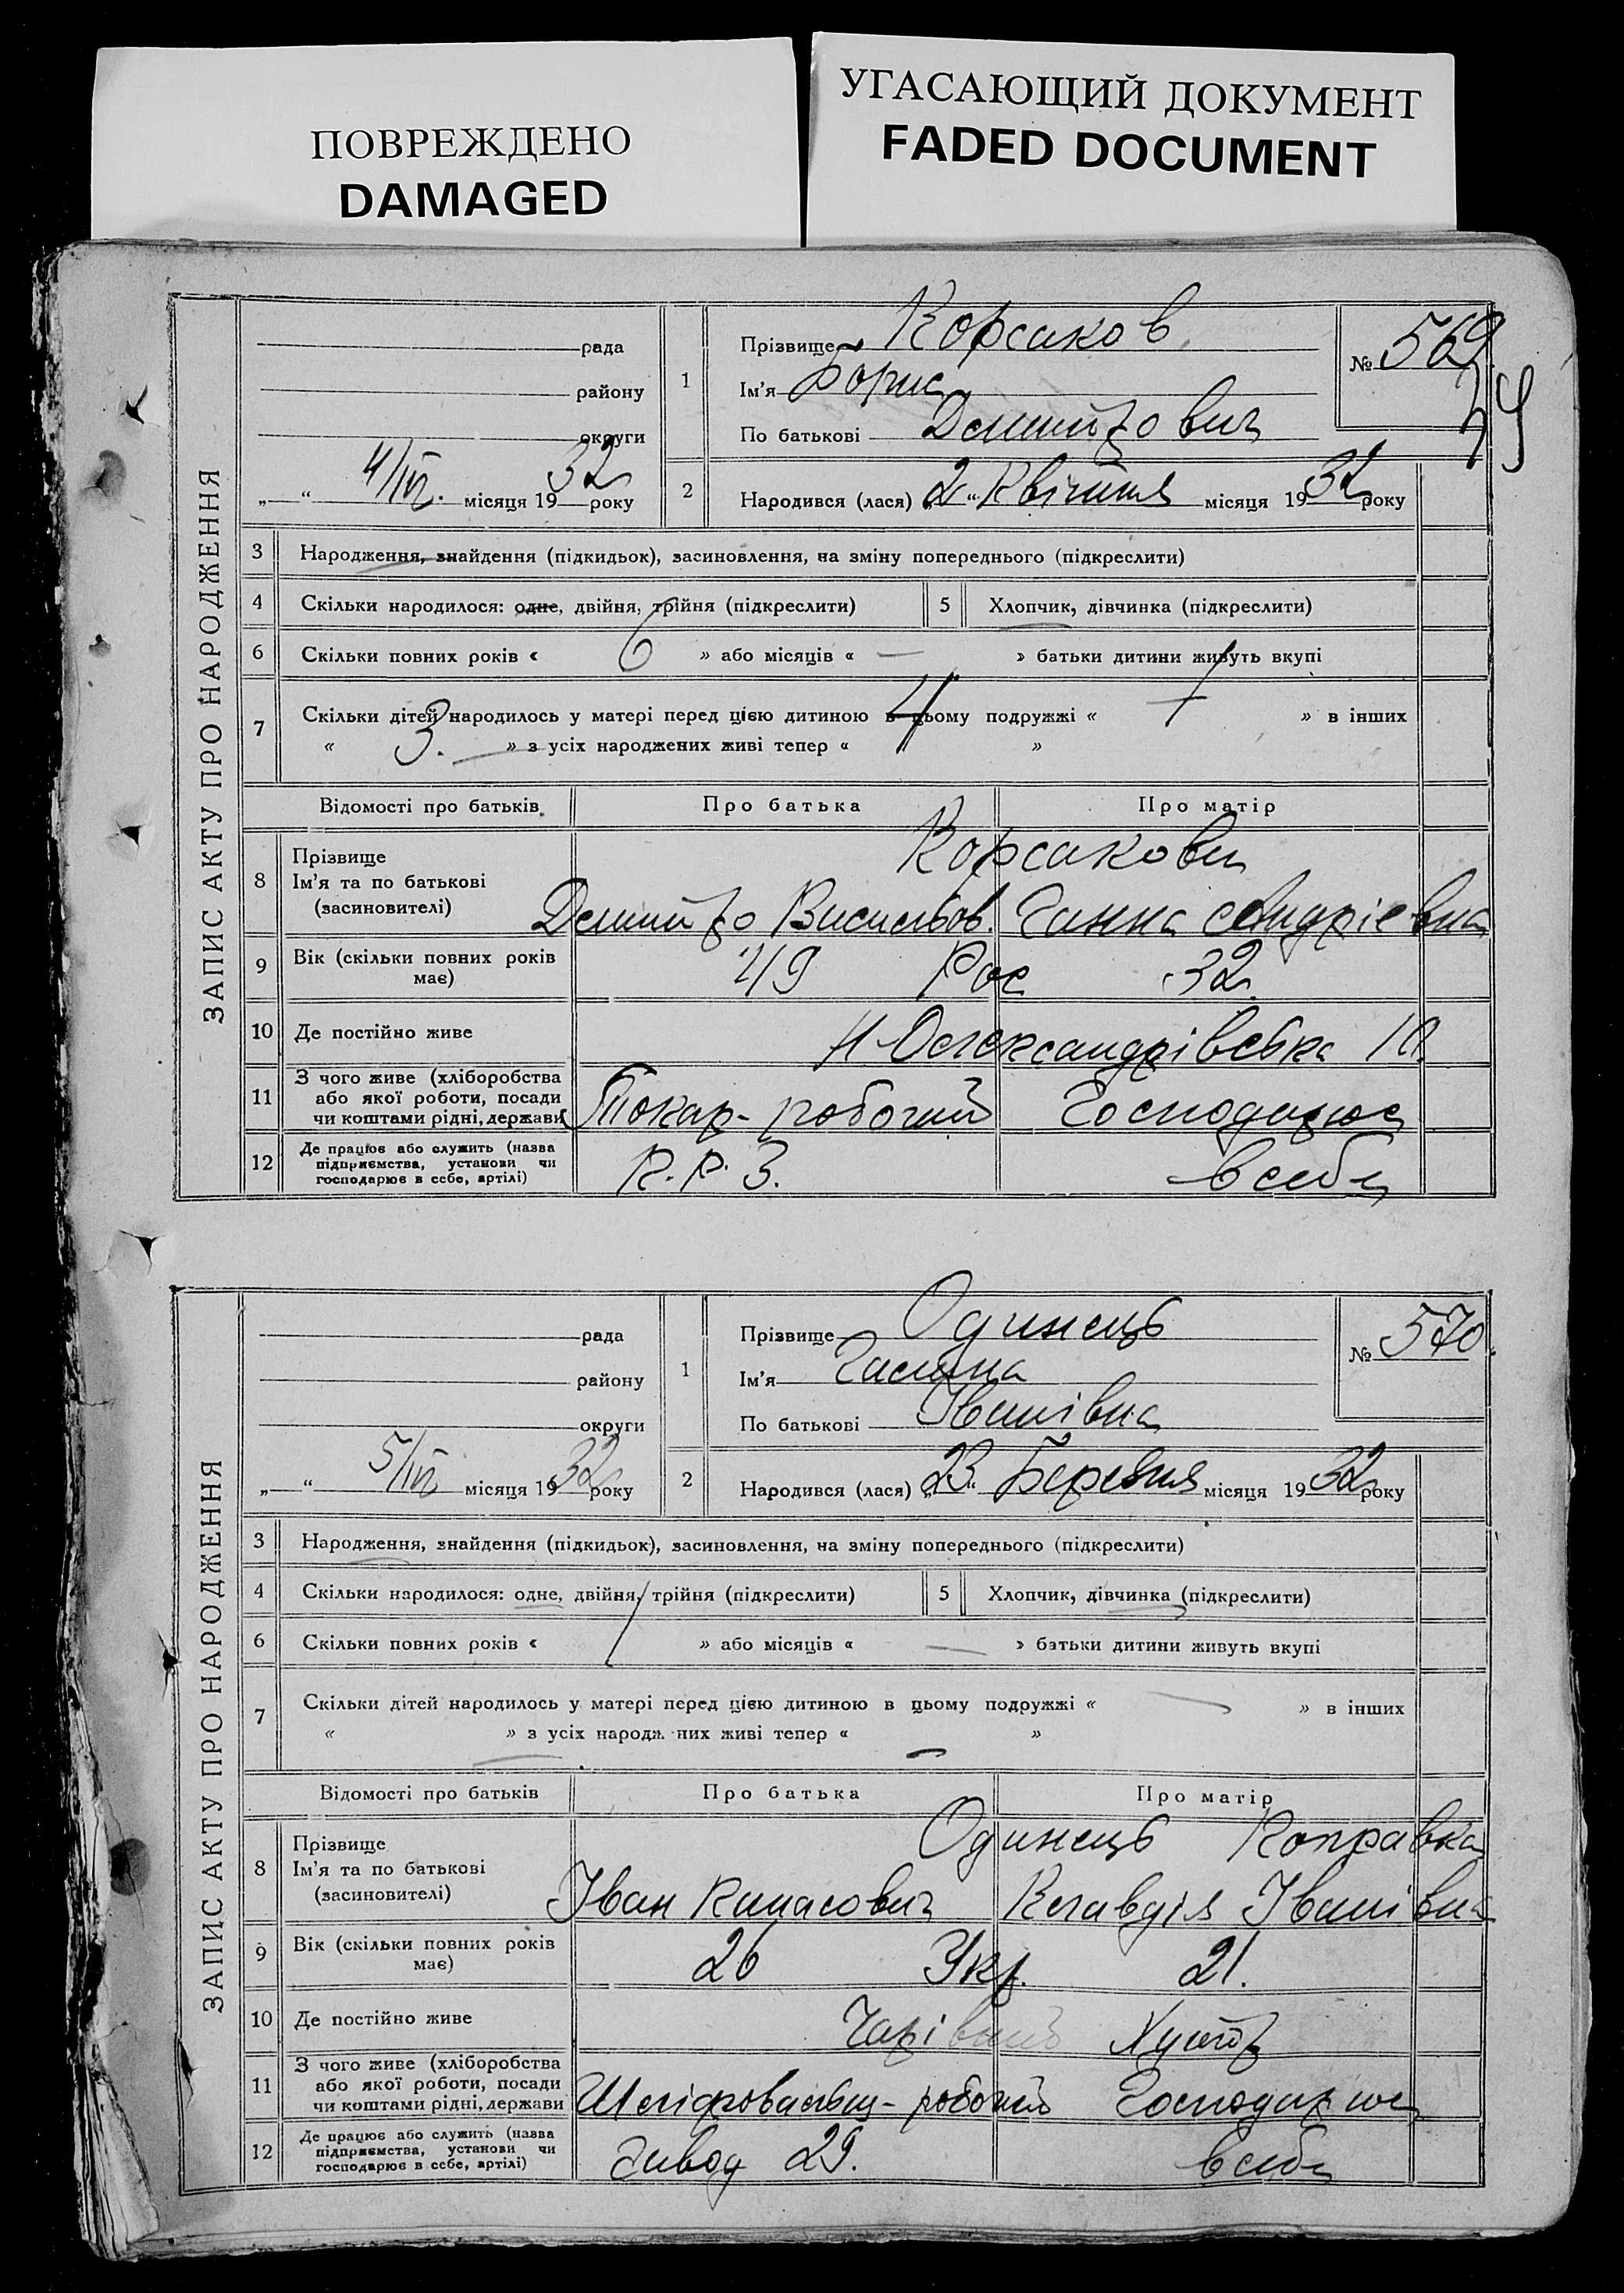 ПОВРЕЖДЕНО
DAMAGED
УГАСАЮЩИЙ ДОКУМЕНТ
FADED DOCUMENT
ЗАПИС АКТУ ПРО НАРОДЖЕННЯ
рада
району
округи
„ “ 4/IV. місяця 1932 року
1
Прізвище Корсаков
Ім'я Борис
По батькові Дмитрович
№ 569
2
Народився (лася) „2“ Квітня місяця 1932 року
3 Народження, знайдення (підкидьок), засиновлення, на зміну попереднього (підкреслити)
4 Скільки народилося: одне, двійня, трійня (підкреслити)
5 Хлопчик, дівчинка (підкреслити)
6 Скільки повних років « 6 » або місяців « — » батьки дитини живуть вкупі
7 Скільки дітей народилось у матері перед цією дитиною в цьому подружжі « » в інших
« 3. » з усіх народжених живі тепер « 4 »
Відомості про батьків Про батька Про матір
8 Прізвище
Ім'я та по батькові
(засиновителі)
Корсакови
Дмитро Васильов. Ганна Андріевна
9 Вік (скільки повних років має) 49 Рос 32
10 Де постійно живе Олександрівська 10.
11 З чого живе (хліборобства або якої роботи, посади чи коштами рідні, держави Токар-робочий Господарює
12 Де працює або служить (назва підприємства, установи чи господарює в себе, артілі) К.Р.З. в себе
ЗАПИС АКТУ ПРО НАРОДЖЕННЯ
рада
району
округи
„ “ 5/IV місяця 1932 року
1
Прізвище Одинець
Ім'я Галина
По батькові Іванівна
№ 570.
2
Народився (лася) „23“ Березня місяця 1932 року
3 Народження, знайдення (підкидьок), засиновлення, на зміну попереднього (підкреслити)
4 Скільки народилося: одне, двійня, трійня (підкреслити)
5 Хлопчик, дівчинка (підкреслити)
6 Скільки повних років « 1 » або місяців « — » батьки дитини живуть вкупі
7 Скільки дітей народилось у матері перед цією дитиною в цьому подружжі « — » в інших
« — » з усіх народжених живі тепер « — »
Відомості про батьків Про батька Про матір
8 Прізвище
Ім'я та по батькові
(засиновителі)
Одинець
Іван Клавдія Іванівна
9 Вік (скільки повних років має) 26 Укр. 21.
10 Де постійно живе Хутір
11 З чого живе (хліборобства або якої роботи, посади чи коштами рідні, держави Шліфовальщ-робочий Господарює
12 Де працює або служить (назва підприємства, установи чи господарює в себе, артілі) Завод 29. в себе